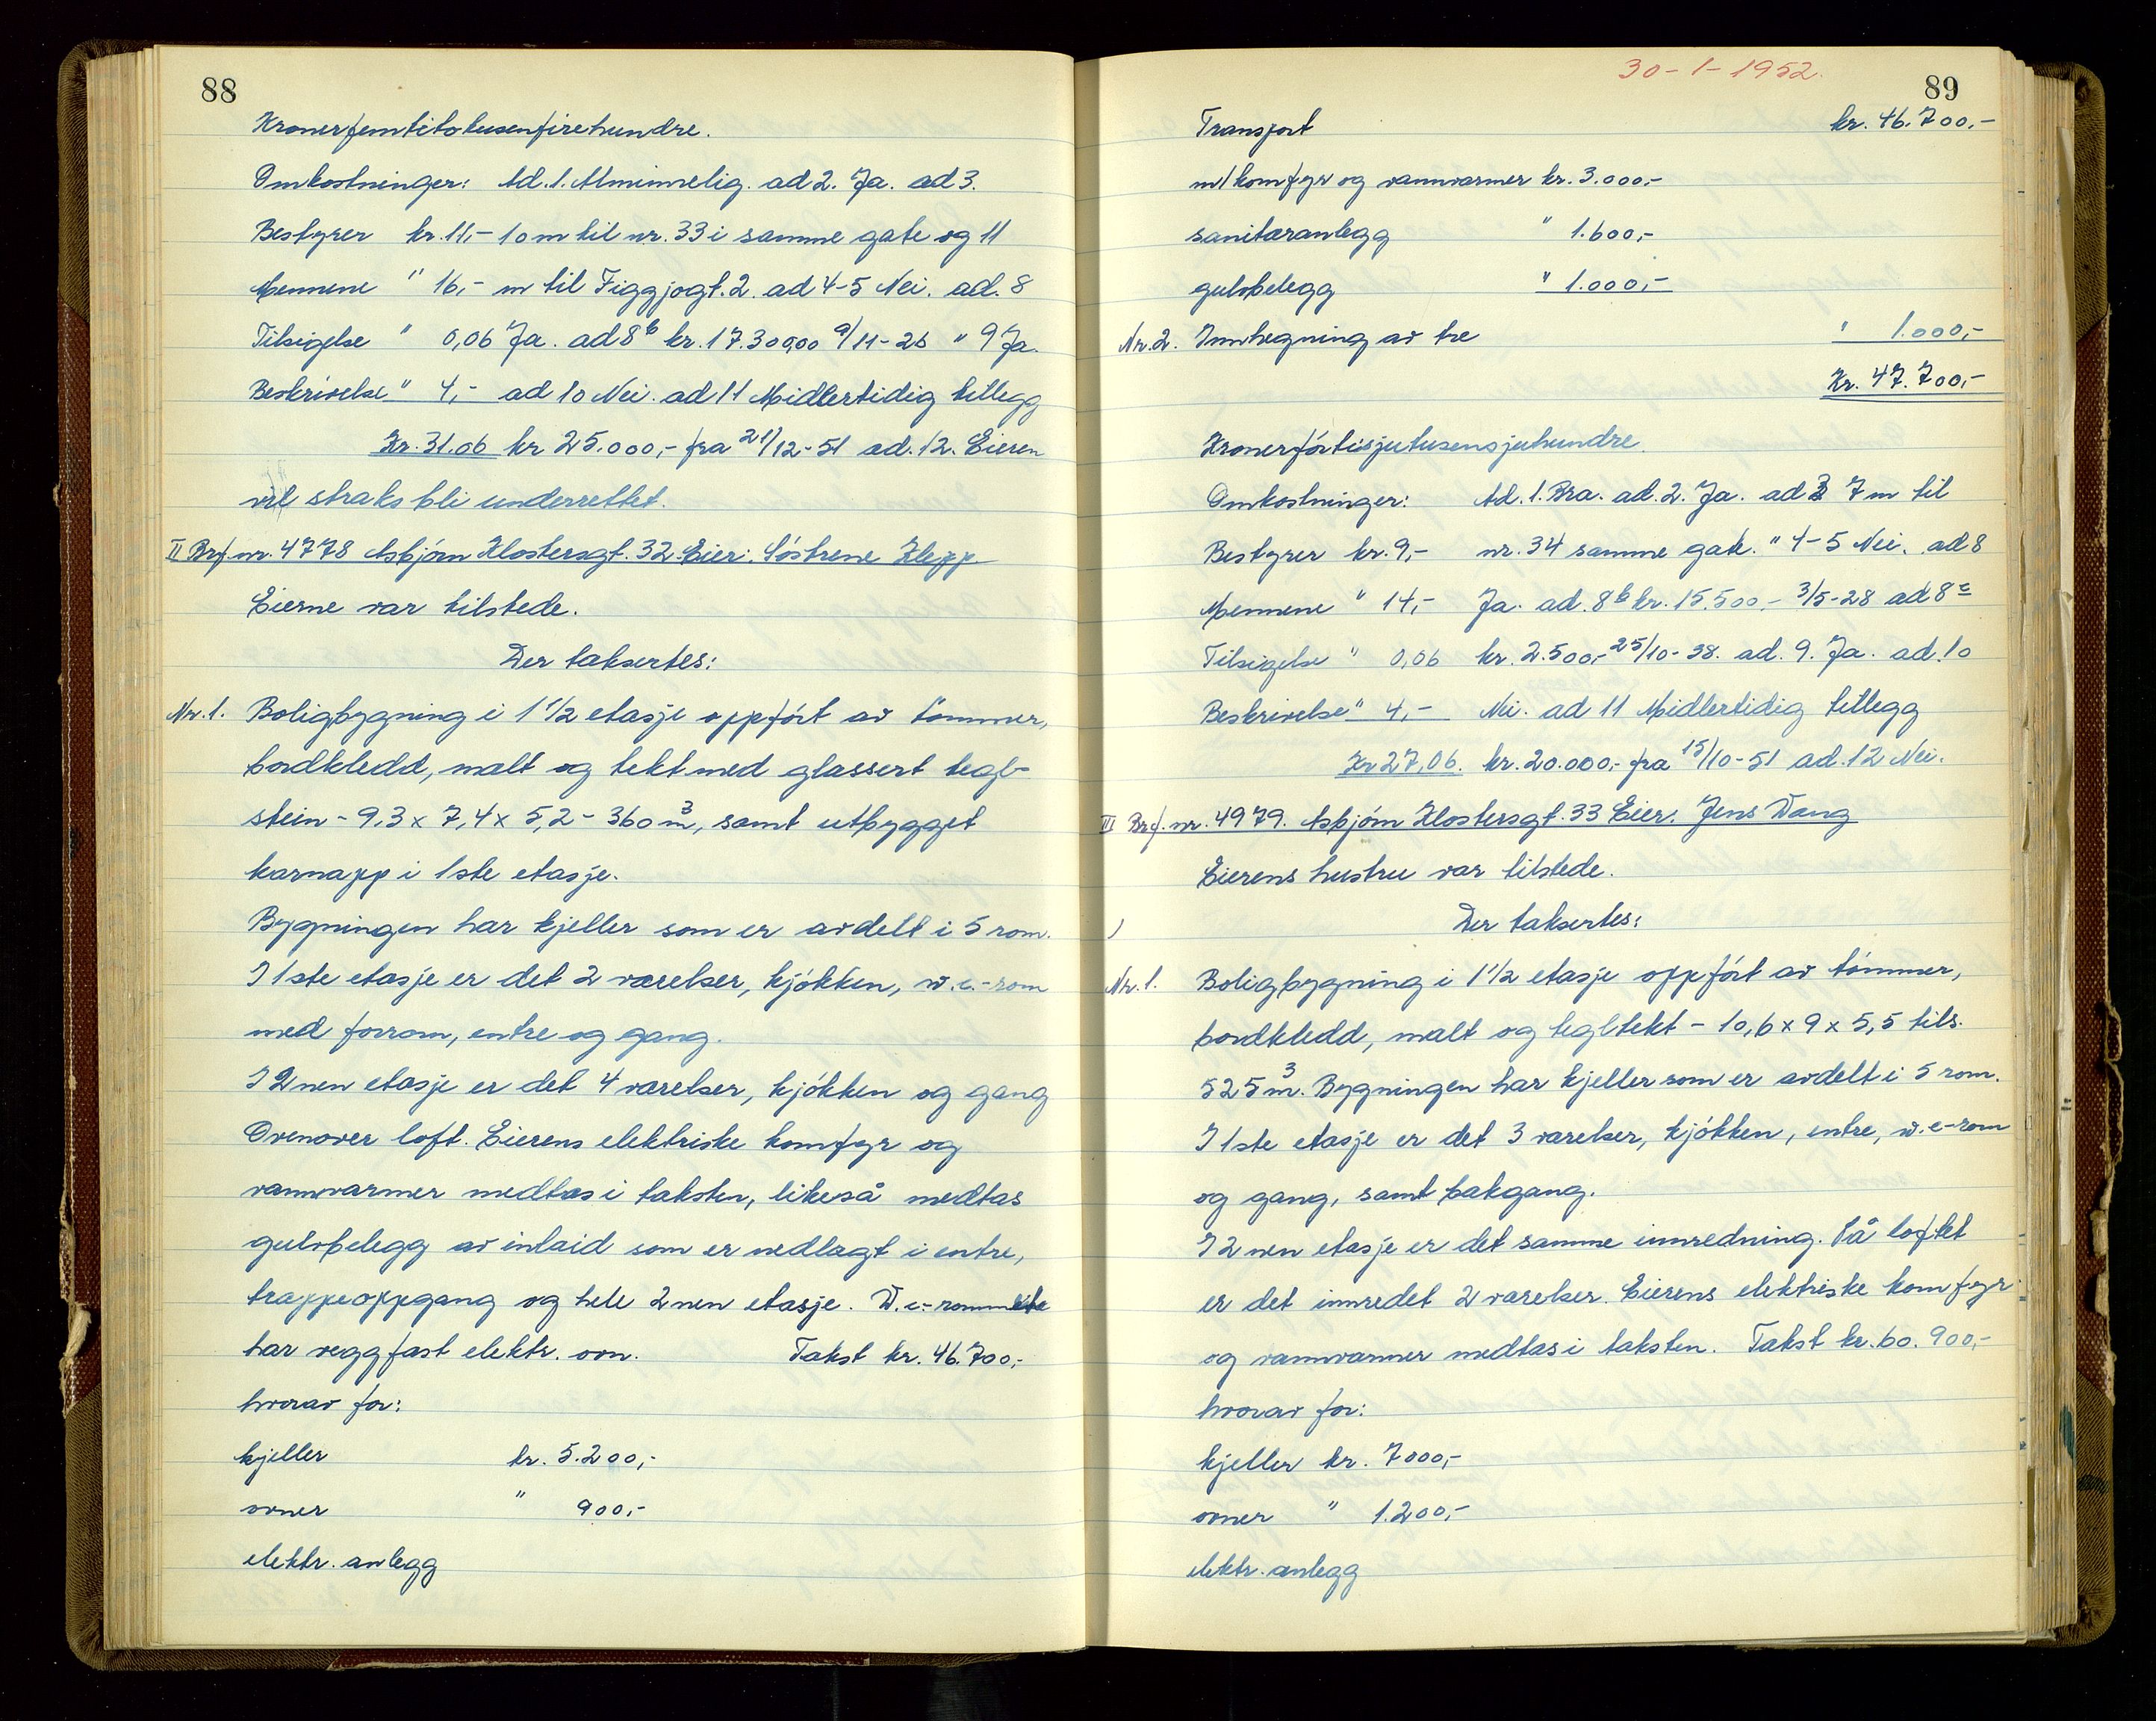 88
Kronerfemtitotusenfirehundre.
Omkostninger: Ad. 1. Alminnelig. ad 2. Ja. ad 3.
Bestyrer kr. 11,- 10 m til nr. 33 i samme gate og 11
Mennene " 16,- m til Figgjogt. 2. ad 4-5 Nei. ad. 8
Tilsigelse " 0,06 Ja. ad 8b kr. 17.300,00 9/11-26 " 9 Ja.
Beskrivelse " 4,- ad 10 Nei. ad 11 Midlertidig tillegg
Kr. 31.06 kr 25.000,- fra 21/12-51 ad. 12. Eieren
vil straks bli underrettet.
II Brf. nr. 4778 Asbjørn Klostersgt. 32 Eier: Søstrene Klepp
Eierne var tilstede.
Der taksertes:
Nr. 1. Boligbygning i 1 1/2 etasje oppført av tømmer,
bordkledd, malt og tekt med glassert tegl-
stein - 9,3 x 7,4 x 5,2 - 360 m3, samt utbygget
karnapp i 1ste etasje.
Bygningen har kjeller som er avdelt i 5 rom.
I 1ste etasje er det 2 værelser, kjøkken, w.c.-rom
med forrom, entre og gang.
I 2nen etasje er det 4 værelser, kjøkken og gang
Ovenover loft. Eierens elektriske komfyr og
vannvarmer medtas i taksten, likeså medtas
gulvbelegg av inlaid som er nedlagt i entre,
trappeoppgang og hele 2nen etasje. W.c.-rommet
har veggfast elektr. ovn. Takst kr. 46.700,-
hvorav for:
kjeller kr. 5.200,-
ovner " 900,-
elektr. anlegg
30-1-1952.
89
Transport kr. 46.700,-
m/komfyr og vannvarmer kr. 3.000,-
sanitæranlegg " 1.600,-
gulvbelegg " 1.000,-
Nr. 2. Innhegning av tre " 1.000,-
Kr. 47.700,-
Kronerførtisjutusensjuhundre.
Omkostninger: Ad. 1. Bra. ad. 2. Ja. ad 3 7 m til
Bestyrer kr. 9,- nr. 34 samme gate. " 4-5 Nei. ad 8
Mennene " 14,- Ja. ad. 8b kr. 15.500,- 3/5-28 ad 8c
Tilsigelse " 0,06 kr. 2.500,- 25/10-38. ad. 9. Ja. ad. 10
Beskrivelse " 4,- Nei. ad 11 Midlertidig tillegg
Kr 27,06. kr. 20.000,- fra 15/10-51 ad. 12 Nei.
III Brf. nr. 4979. Asbjørn Klostersgt. 33 Eier. Jens Wang
Eierens hustru var tilstede.
Der taksertes:
Nr. 1. Boligbygning i 1 1/2 etasje oppført av tømmer,
bordkledd, malt og tegltekt - 10,6 x 9 x 5,5 tils.
525 m3. Bygningen har kjeller som er avdelt i 5 rom.
I 1ste etasje er det 3 værelser, kjøkken, entre, w.c-rom
og gang, samt bakgang.
I 2nen etasje er det samme innredning. På loftet
er det innredet 2 værelser. Eierens elektriske komfyr
og vannvarmer medtas i taksten. Takst kr. 60.900,-
hvorav for:
kjeller kr. 7000,-
ovner " 1.200,-
elektr. anlegg